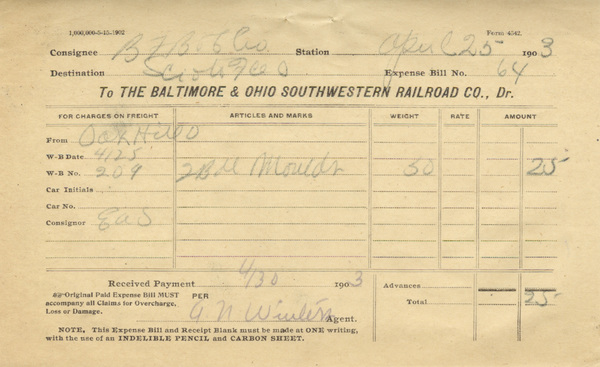 1,000,000-5-15-1902 Form 4542.
Consignee B F B & Co. Station April 25 1903
Destination Scioto O Expense Bill No. 64
To THE BALTIMORE & OHIO SOUTHWESTERN RAILROAD CO., Dr.
FOR CHARGES ON FREIGHT ARTICLES AND MARKS WEIGHT RATE AMOUNT
From Oak Hill O
W-B Date 4/25
W-B No. 209 2 Moulds 50 25
Car Initials
Car No.
Consignor
Received Payment 4/30 1903 Advances
Original Paid Expense Bill MUST PER Total 25
accompany all Claims for Overcharge,
Loss or Damage. Agent.
NOTE, This Expense Bill and Receipt Blank must be made at ONE writing,
with the use of an INDELIBLE PENCIL and CARBON SHEET.